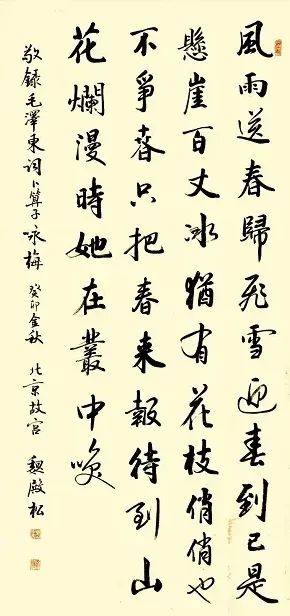 風雨送春歸飛雪迎春到已是
懸崖百丈冰猶有花枝俏俏也
不爭春只把春来報待到山
花爛漫時她在叢中咲
敬錄毛澤東詞卜算子咏梅 癸卯金秋 北京故宮 魏殿松